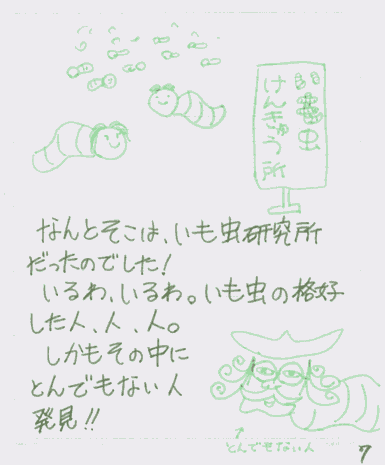 いも虫
けんきゅう所
なんとそこは、いも虫研究所
だったのでした!
いるわ、いるわ。いも虫の格好
した人、人、人。
しかもその中に
とんでもない人
発見!!
↑
とんでもない人
7